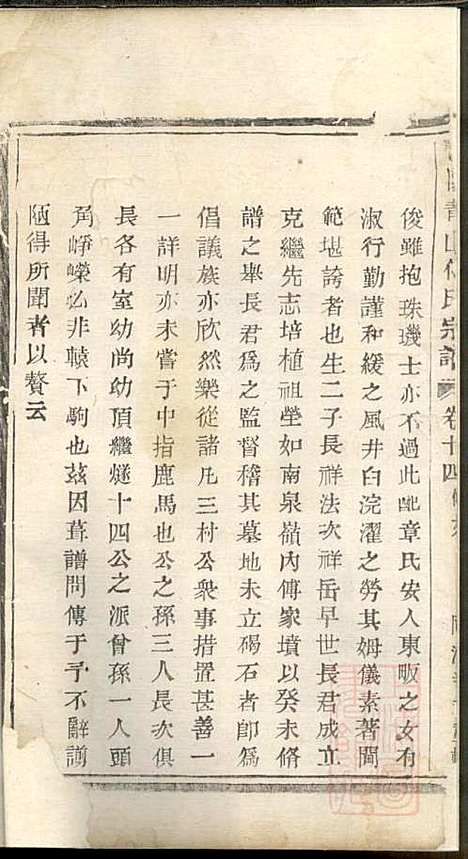 俊雖抱珠璣士亦不過此配章氏安人東畈之女有
淑行勤謹和緩之風井臼浣濯之勞其姆儀素著閫
範堪誇者也生二子長祥法次祥岳早世長君成立
克繼先志培植祖塋如南泉嶺內傅家墳以癸未脩
譜之舉長君爲之監督稽其墓地未立碣石者卽爲
倡議族亦欣然樂從諸凡三村公衆事措置甚善一
一詳明亦未嘗于中指鹿馬也公之孫三人長次俱
長各有室幼尚幼頂繼燧十四公之派曾孫一人頭
角崢嶸必非轅下駒也茲因葺譜問傳于予不辭謭
陋得所聞者以贅云
青山傅氏宗譜 卷十四